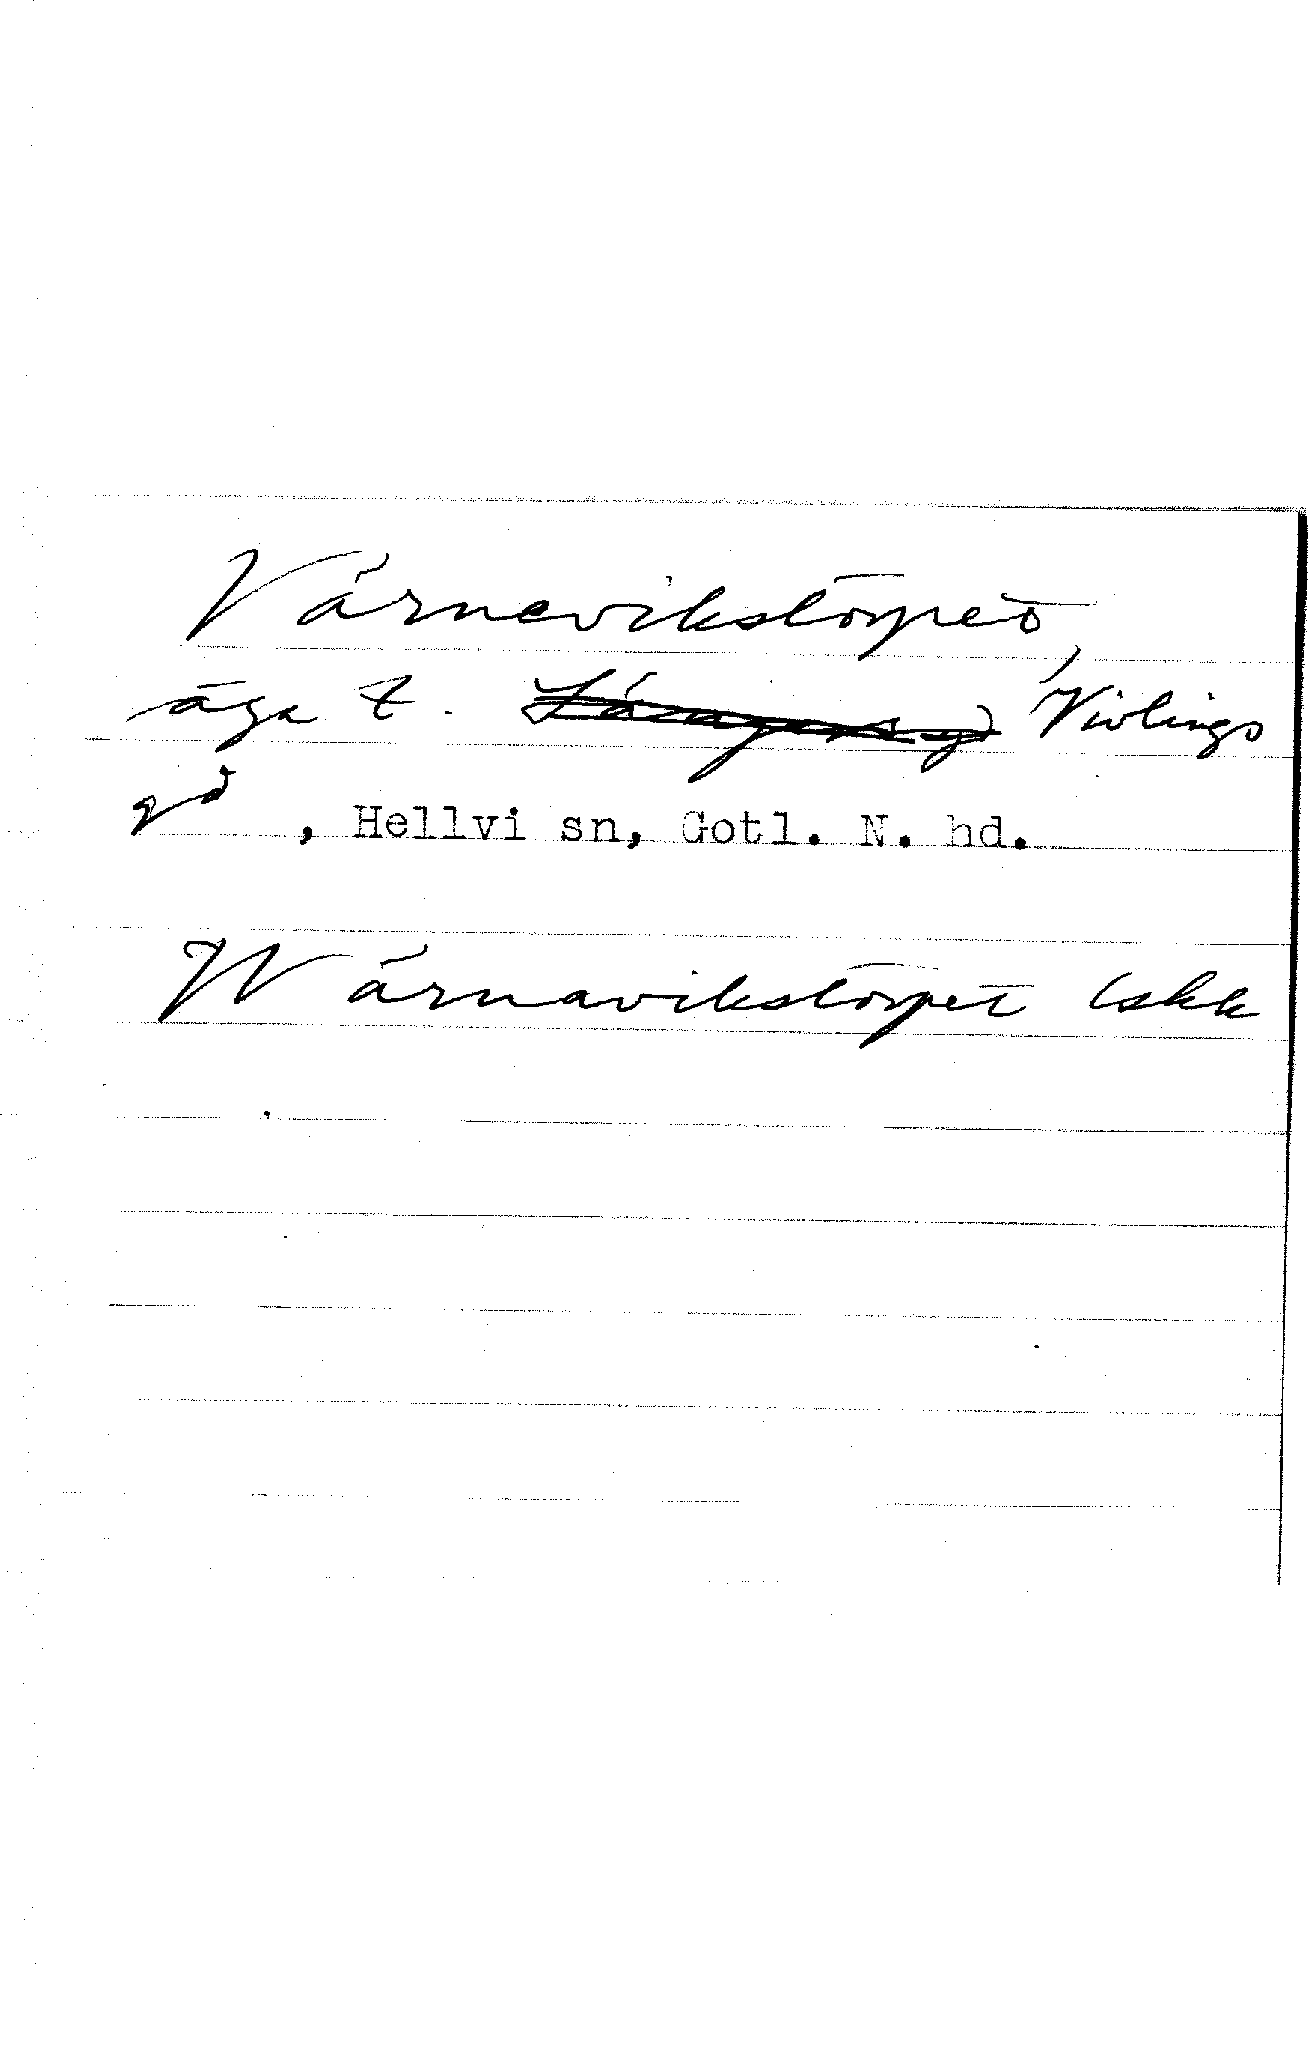 Värnevikstorpet,
äga t. Vivlings
gd, Hellvi sn, Gotl. N. hd.
Wärnavikstorpet Lskk